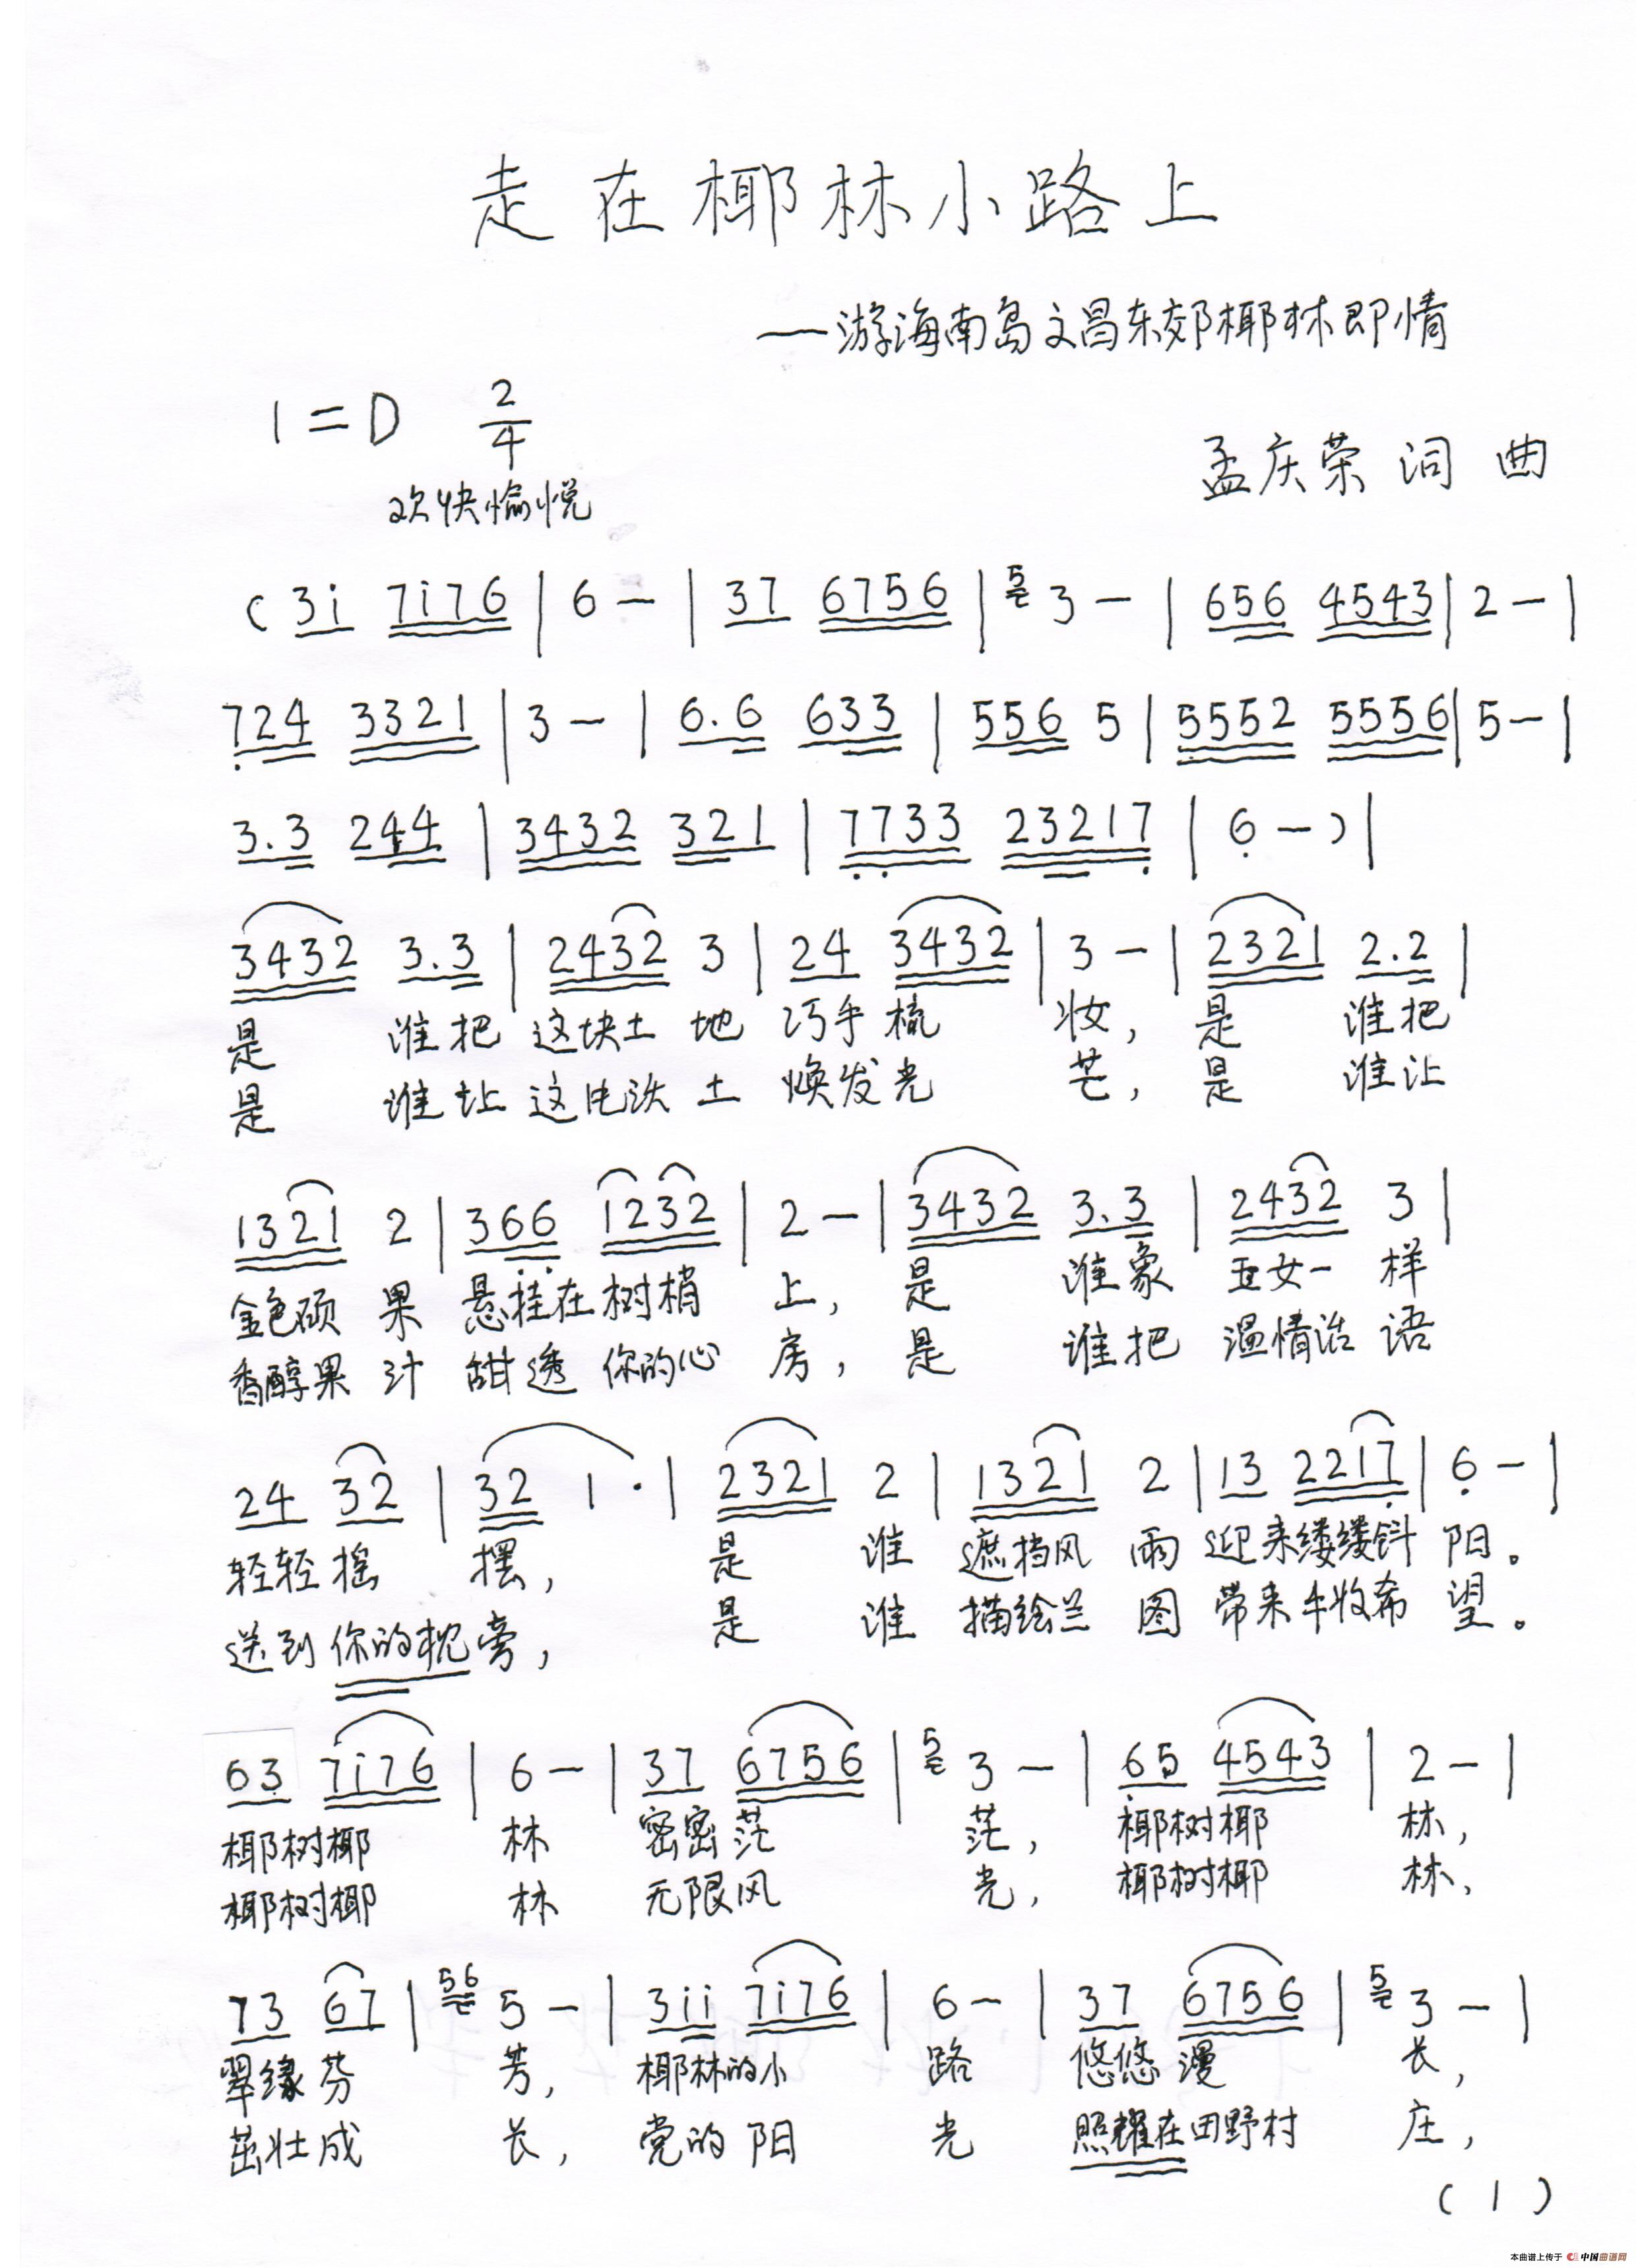 走在椰林小路上
——游海南岛文昌东郊椰林即情
1=D 2/4
孟庆荣 词 曲
欢快愉悦
( 3i 7i76 | 6 — | 37 6756 | 5 3 — | 656 4543 | 2 — |
724 3321 | 3 — | 6.6 633 | 556 5 | 5552 5556 | 5 — |
3.3 244 | 3432 321 | 7733 23217 | 6 — ) |
3432 3.3 | 2432 3 | 24 3432 | 3 — | 2321 2.2 |
是 谁把 这块土 地 巧手梳 妆, 是 谁把
是 谁让 这片沃 土 焕发光 芒, 是 谁让
1321 2 | 366 1232 | 2 — | 3432 3.3 | 2432 3 |
金色硕 果 悬挂在树梢 上, 是 谁象 玉女一 样
香醇果 汁 甜透 你的心 房, 是 谁把 温情话 语
24 32 | 32 1· | 2321 2 | 1321 2 | 13 2217 | 6 — |
轻轻摇 摆, 是 谁 遮挡风 雨 迎来缕缕斜 阳。
送到你的枕旁, 是 谁 描绘兰 图 带来丰收希 望。
63 7i76 | 6 — | 37 6756 | 5 3 — | 65 4543 | 2 — |
椰树椰 林 密密茫 茫, 椰树椰 林,
椰树椰 林 无限风 光, 椰树椰 林,
73 67 | 56 5 — | 3ii 7i76 | 6 — | 37 6756 | 5 3 — |
翠缘芬 芳, 椰林的小 路 悠悠漫 长,
茁壮成 长, 党的阳 光 照耀在田野村 庄,
(1)
本曲谱上传于 中国曲谱网